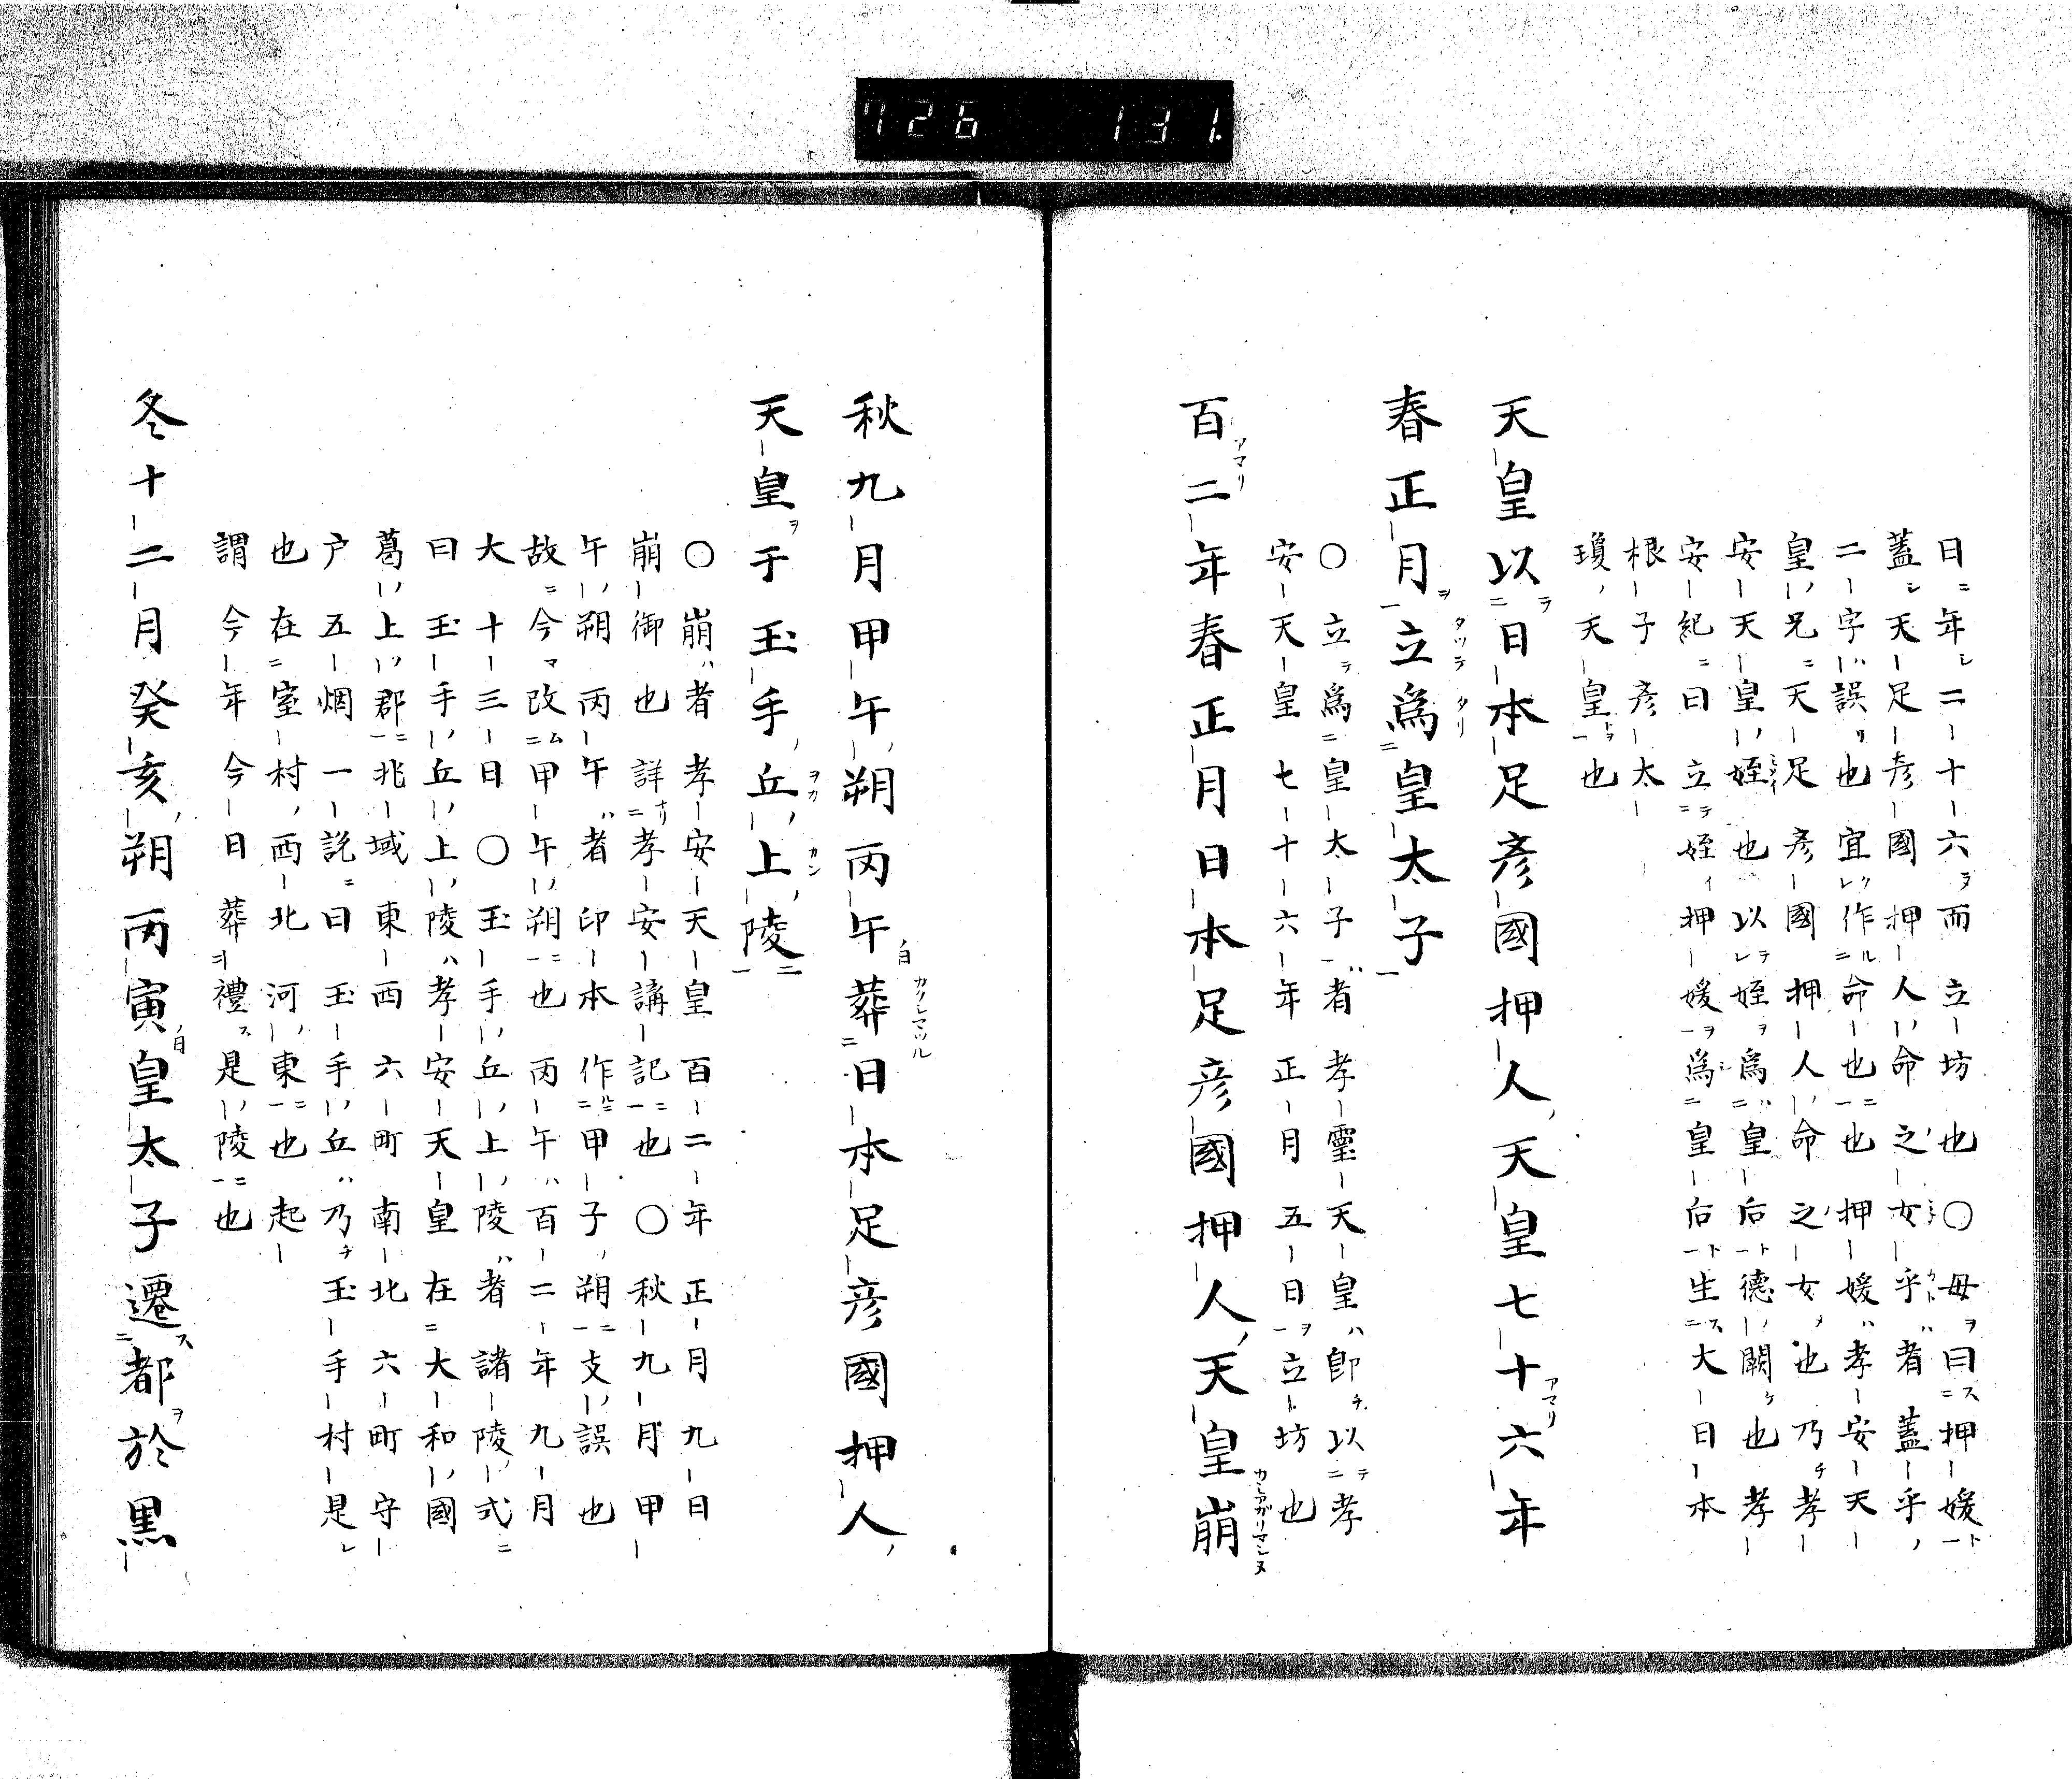 726 131.
日年二十六而立坊也〇母曰押媛
蓋天足彦國押人命之女乎者蓋乎
二字誤也宜作命也也押媛孝安天
皇兄天足彦國押人命之女也乃孝
安天皇姪也以姪爲皇后德闕也孝
安紀曰立姪押媛爲皇后生大日本
根子彦太
瓊天皇也
天皇以日本足彦國押人天皇七十六年
春正月立爲皇太子
〇立爲皇太子者孝靈天皇即以孝
安天皇七十六年正月五日立坊也
百二年春正月日本足彦國押人天皇崩
秋九月甲午朔丙午葬日本足彦國押人
天皇于玉手丘上陵
〇崩者孝安天皇百二年正月九日
崩御也詳孝安講記也〇秋九月甲
午朔丙午者印本作甲子朔支誤也
故今改甲午朔也丙午百二年九月
大十三日〇玉手丘上陵者諸陵式
曰玉手丘上陵孝安天皇在大和國
葛上郡兆域東西六町南北六町守
户五烟一説曰玉手丘乃玉手村是
也在室村西北河東也起
謂今年今日葬禮是陵也
冬十二月癸亥朔丙寅皇太子遷都於黒